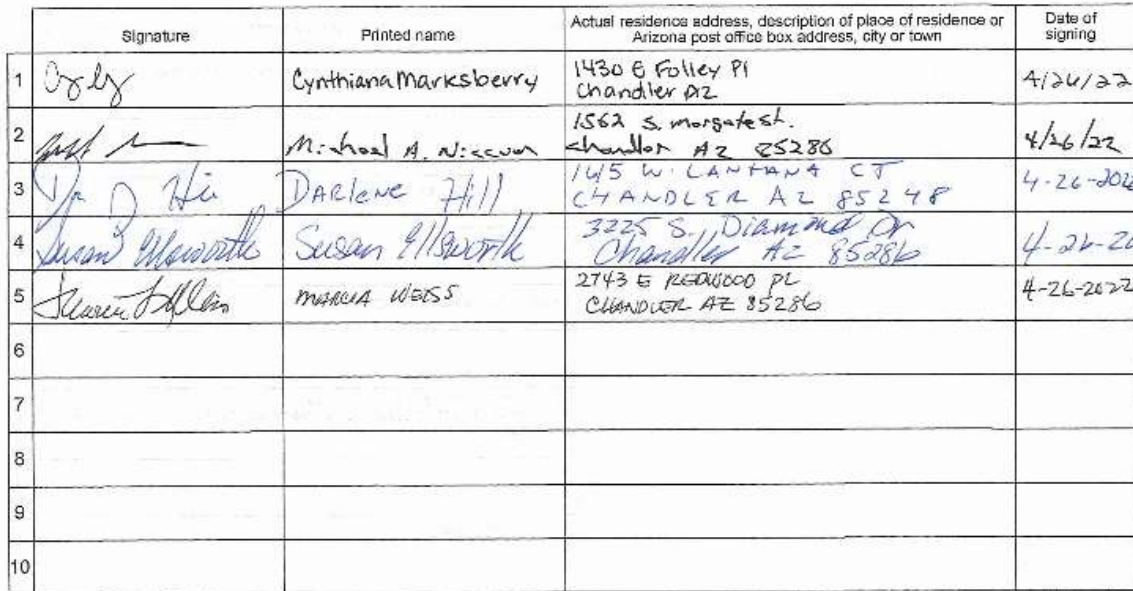 Signature Printed name Actual residence address, description of place of residence or Arizona post office box address, city or town Date of signing
1 Cynthiana Marksberry 1430 E Folley Pl
Chandler AZ 4/26/22
2 Michael A. 1562 S. Morgate st.
Chandler AZ 85286 4/26/22
3 DARLENE Hill W. LANTANA CT
CHANDLER AZ 85248 4-26-202
4 Susan Ellsworth Susan Ellsworth 3225 S. Diamond Dr
Chandler AZ 85286 4-26-20
5 MARCIA WEISS 2743 E REDWOOD PL
CHANDLER AZ 85286 4-26-2022
6
7
8
9
10